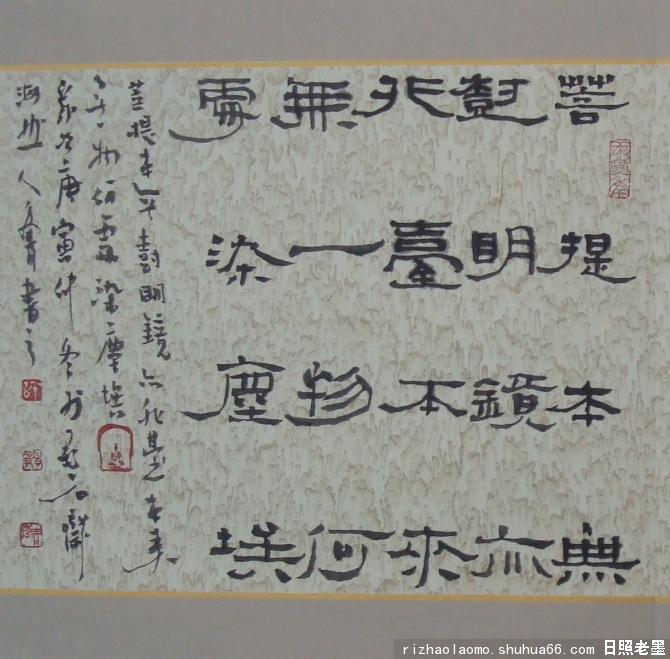 菩提本無
尌明鏡亦
非臺本來
無一物何
處染塵埃
菩提本無尌明鏡亦非臺本來
無一物何處染塵埃
歲次庚寅仲冬於石
海曲人書之
rizhaolaomo.shuhua66.com 日照老墨